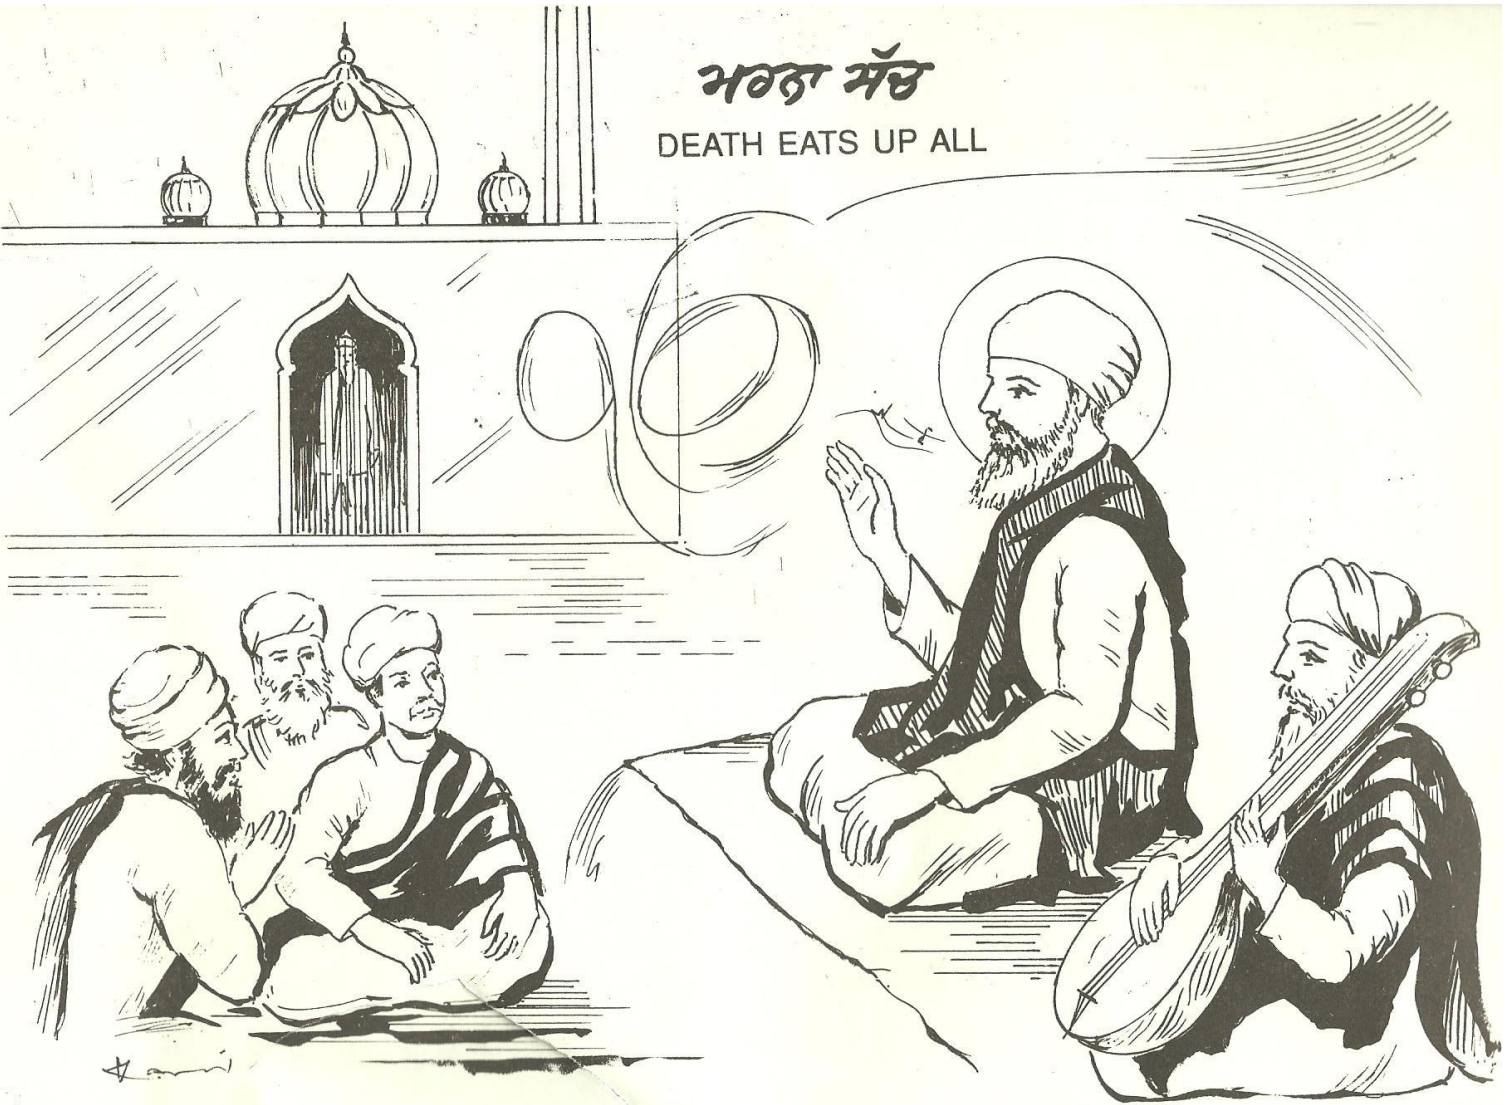 ਮਰਨਾ ਸੱਚ
DEATH EATS UP ALL